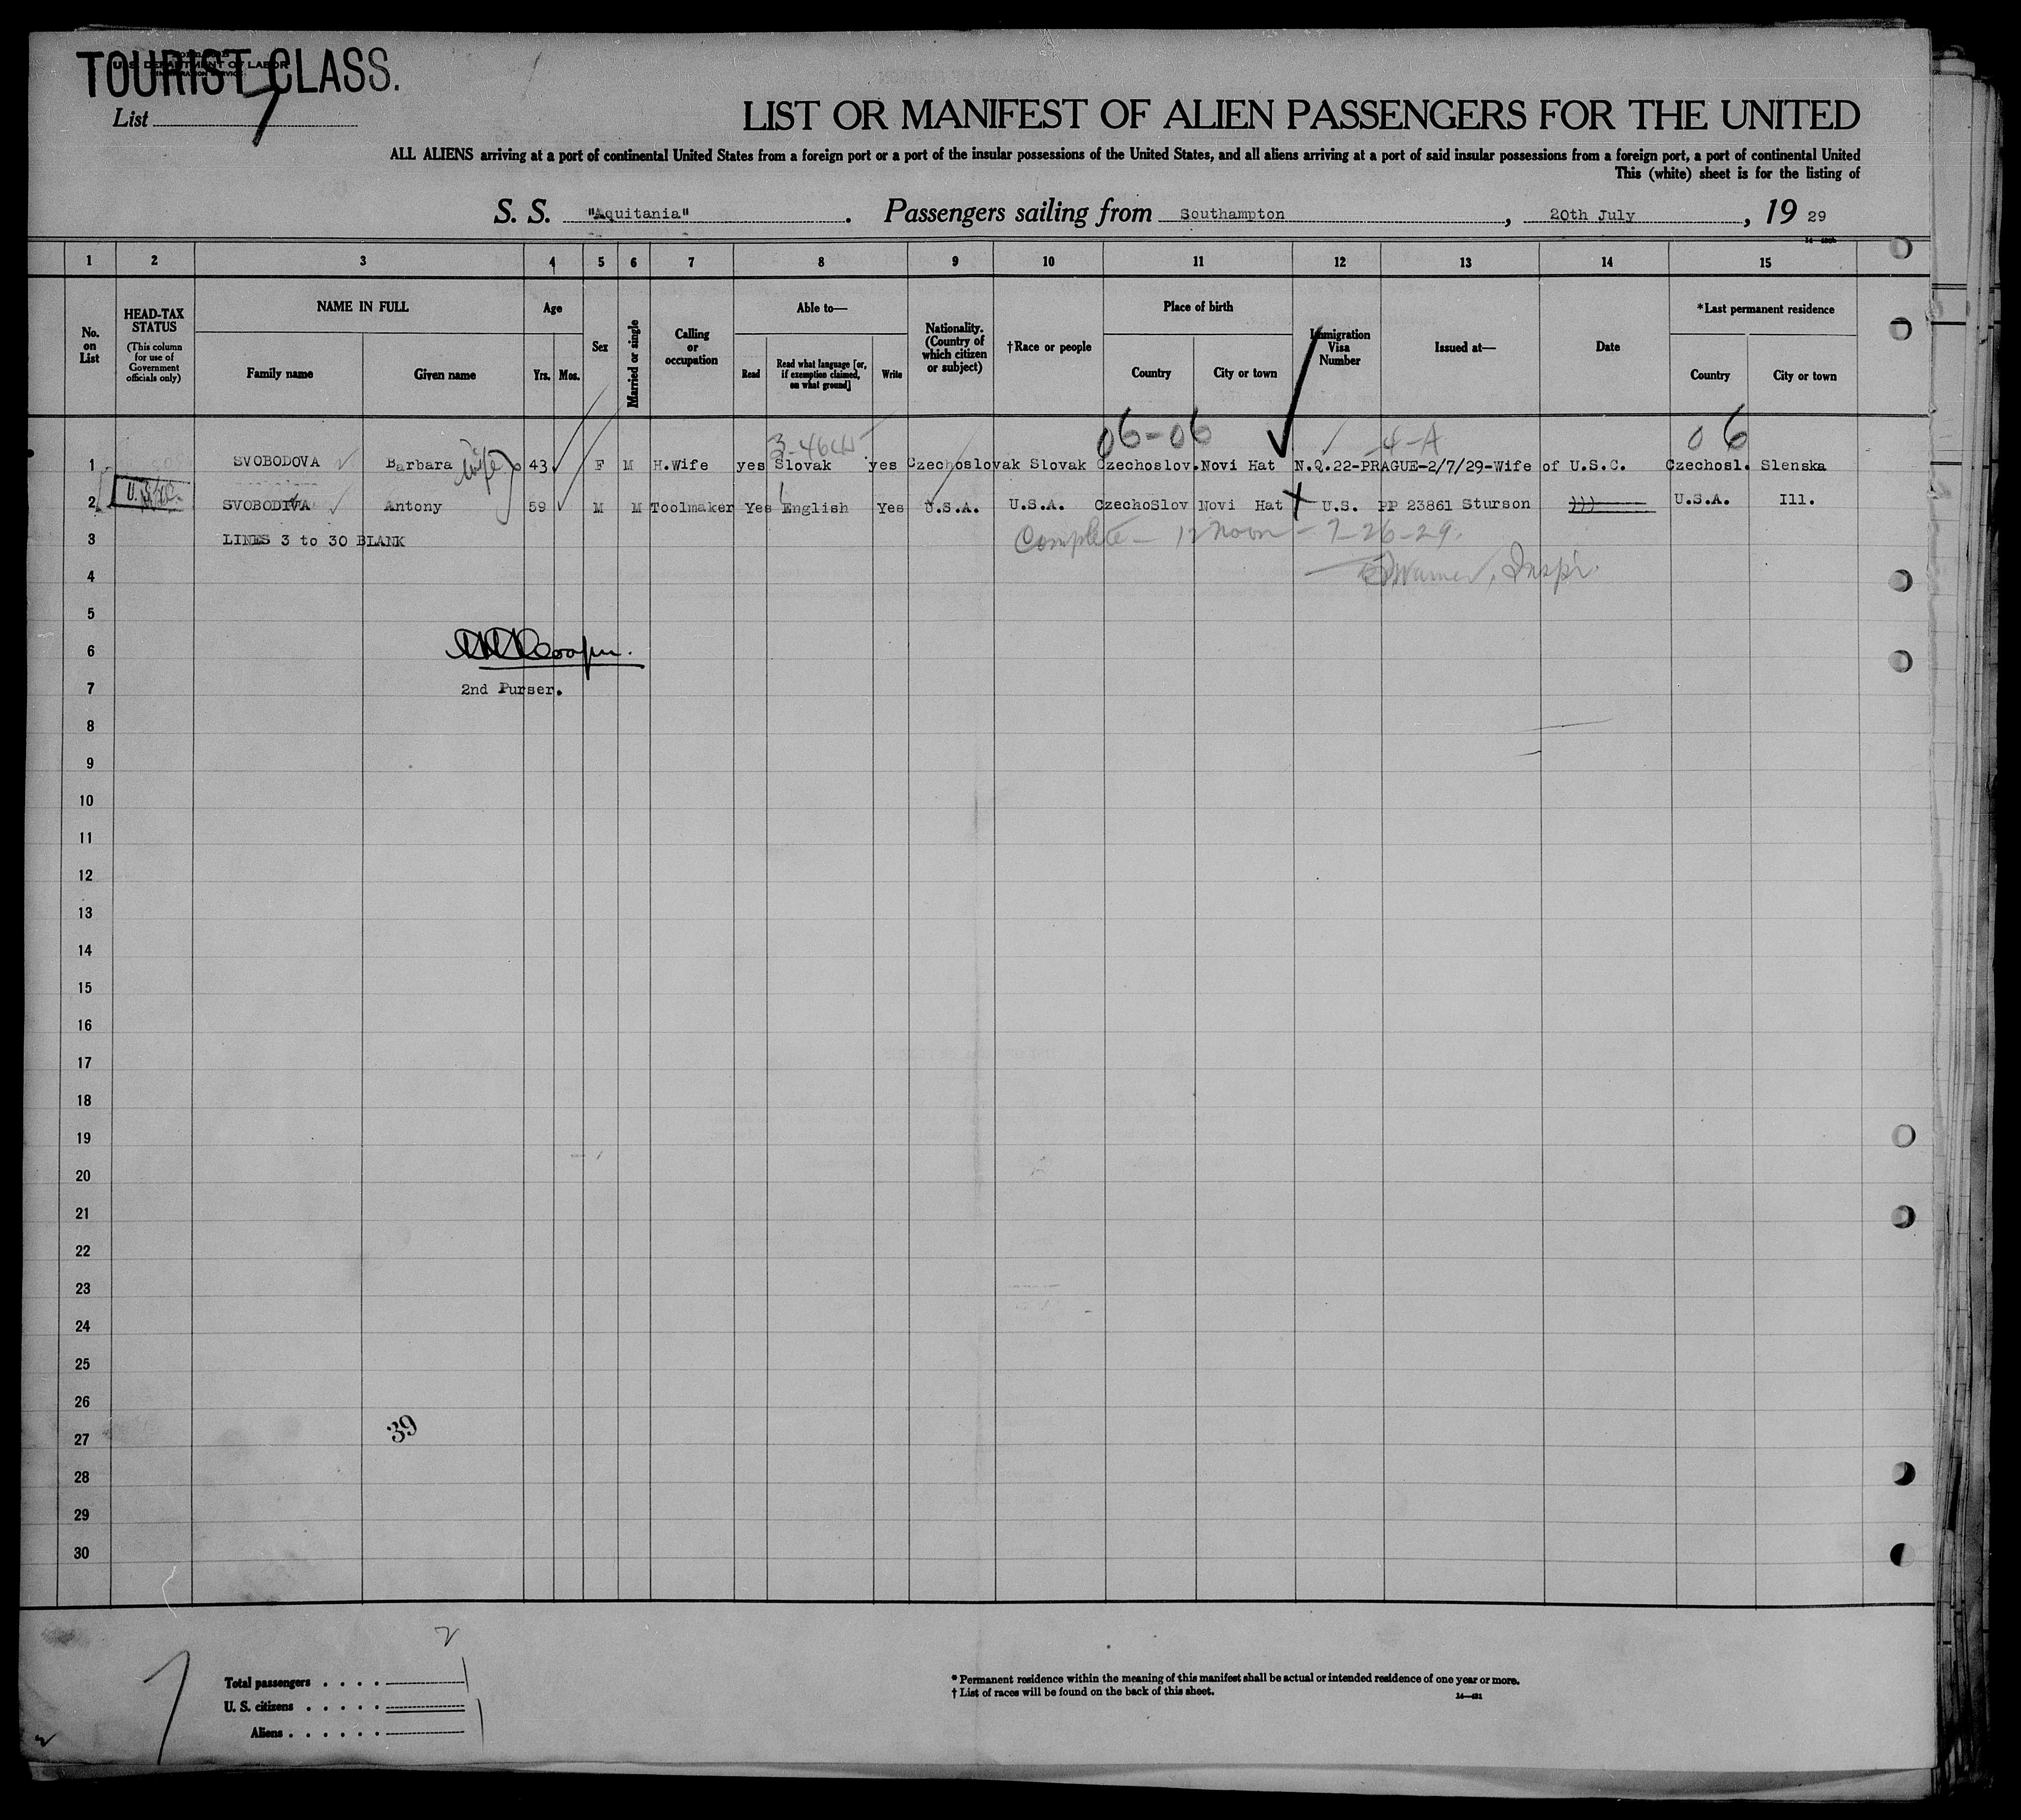 TOURIST CLASS.
U. S. DEPARTMENT OF LABOR
List 7
LIST OR MANIFEST OF ALIEN PASSENGERS FOR THE UNITED
ALL ALIENS arriving at a port of continental United States from a foreign port or a port of the insular possessions of the United States, and all aliens arriving at a port of said insular possessions from a foreign port, a port of continental United
This (white) sheet is for the listing of
S. S. "Aquitania". Passengers sailing from Southampton, 20th July, 19 29
1 2 3 4 5 6 7 8 9 10 11 12 13 14 15
No. on List
HEAD-TAX STATUS (This column for use of Government officials only)
NAME IN FULL Family name Given name
Age Yrs. Mos.
Sex
Married or single
Calling or occupation
Able to— Read Read what language [or, if exemption claimed, on what ground] Write
Nationality. (Country of which citizen or subject)
†Race or people
Place of birth Country City or town
Immigration Visa Number
Issued at—
Date
*Last permanent residence Country City or town
06-06 4-A 06
1 SVOBODOVA Barbara wife 43 F M H.Wife yes Slovak yes Czechoslovak Slovak Czechoslov. Novi Hat N.Q.22-PRAGUE-2/7/29-Wife of U.S.C. Czechosl. Slenska
2 SVOBODIVA Antony 59 M M Toolmaker Yes English Yes U.S.A. U.S.A. CzechoSlov Novi Hat U.S. PP 23861 Sturson U.S.A. Ill.
3 LINES 3 to 30 BLANK Complete - 12 Noon - 7-26-29.
4 Warner, Inspr.
5
6
7 2nd Purser.
8
9
10
11
12
13
14
15
16
17
18
19
20
21
22
23
24
25
26
27 39
28
29
30
2
Total passengers
U. S. citizens
Aliens
* Permanent residence within the meaning of this manifest shall be actual or intended residence of one year or more.
† List of races will be found on the back of this sheet.